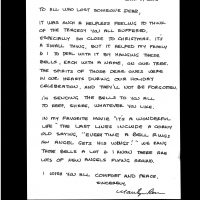 TO ALL WHO LOST SOMEONE DEAR,
IT WAS SUCH A HELPLESS FEELING TO THINK
OF THE TRAGEDY YOU ALL SUFFERED,
ESPECIALLY SO CLOSE TO CHRISTMAS. IT'S
A SMALL THING, BUT IT HELPED MY FAMILY
& I TO DEAL WITH IT BY HANGING THESE
BELLS, EACH WITH A NAME, ON OUR TREE.
THE SPIRITS OF THOSE DEAR ONES WERE
IN OUR HEARTS DURING OUR HOLIDAY
CELEBRATION, AND THEY'LL NOT BE FORGOTTEN.
I'M SENDING THE BELLS TO YOU ALL
TO KEEP, SHARE, WHATEVER YOU LIKE.
IN MY FAVORITE MOVIE "IT'S A WONDERFUL
LIFE" THE LAST LINES INCLUDE A CORNY
OLD SAYING, "EVERY TIME A BELL RINGS
AN ANGEL GETS HIS WINGS!" WE RANG
THOSE BELLS A LOT & I KNOW THERE ARE
LOTS OF NEW ANGELS FLYING AROUND.
I WISH YOU ALL COMFORT AND PEACE,
SINCERELY,